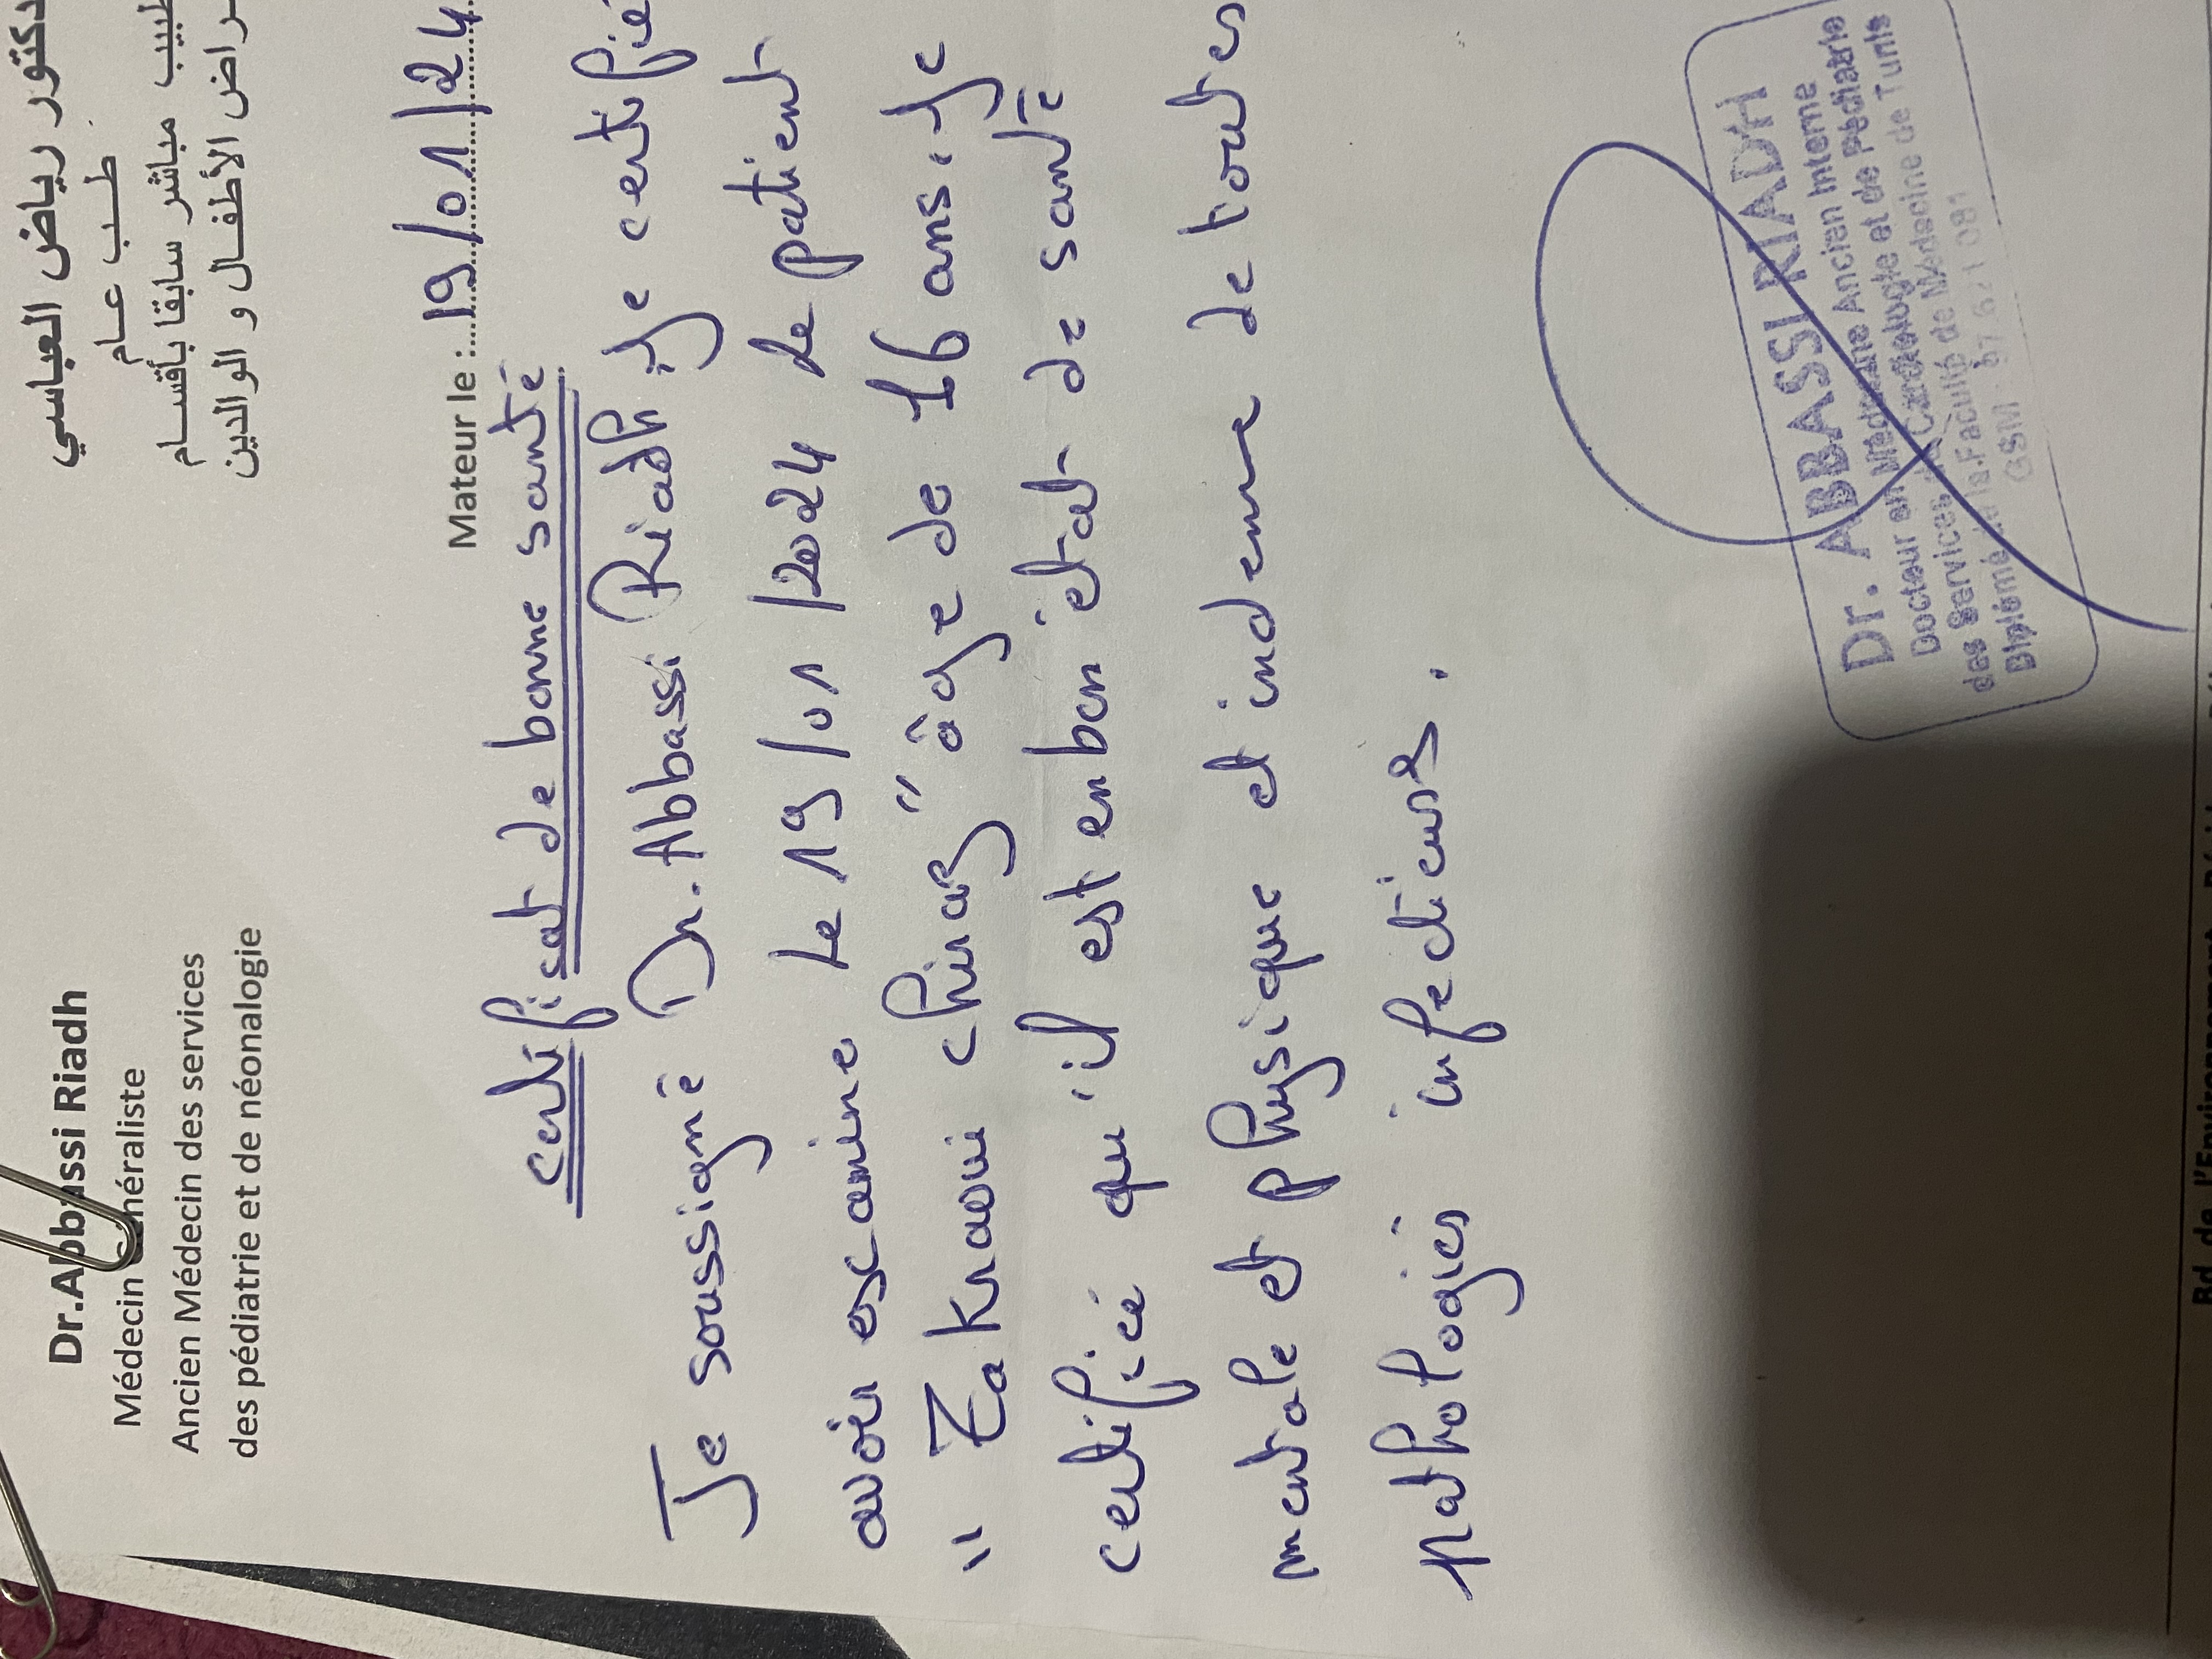 Dr.Abbassi Riadh
Médecin Généraliste
Ancien Médecin des services
des pédiatrie et de néonalogie
دكتور رياض العباسي
طــب عـــام
طبيب مباشر سابقا بأقســام
ـراض الأطفــال و الوالدين
Mateur le : 19/01/24
certificat de bonne santé
Je soussigné Dr. Abbassi Riadh ; Je certifié
avoir examine Le 19/01/2024 Le patient
" Zakraoui chiras " âge de 16 ans. Je
certifié qu'il est en bon état de santé
mentale et physique et indemne de toutes
pathologies infectieuses.
Dr. ABBASSI RIADH
Docteur en Médecine Ancien Interne
des Services de et de Pédiatrie
Diplômé de la Faculté de Médecine de Tunis
GSM
Bd. de l'Environnement